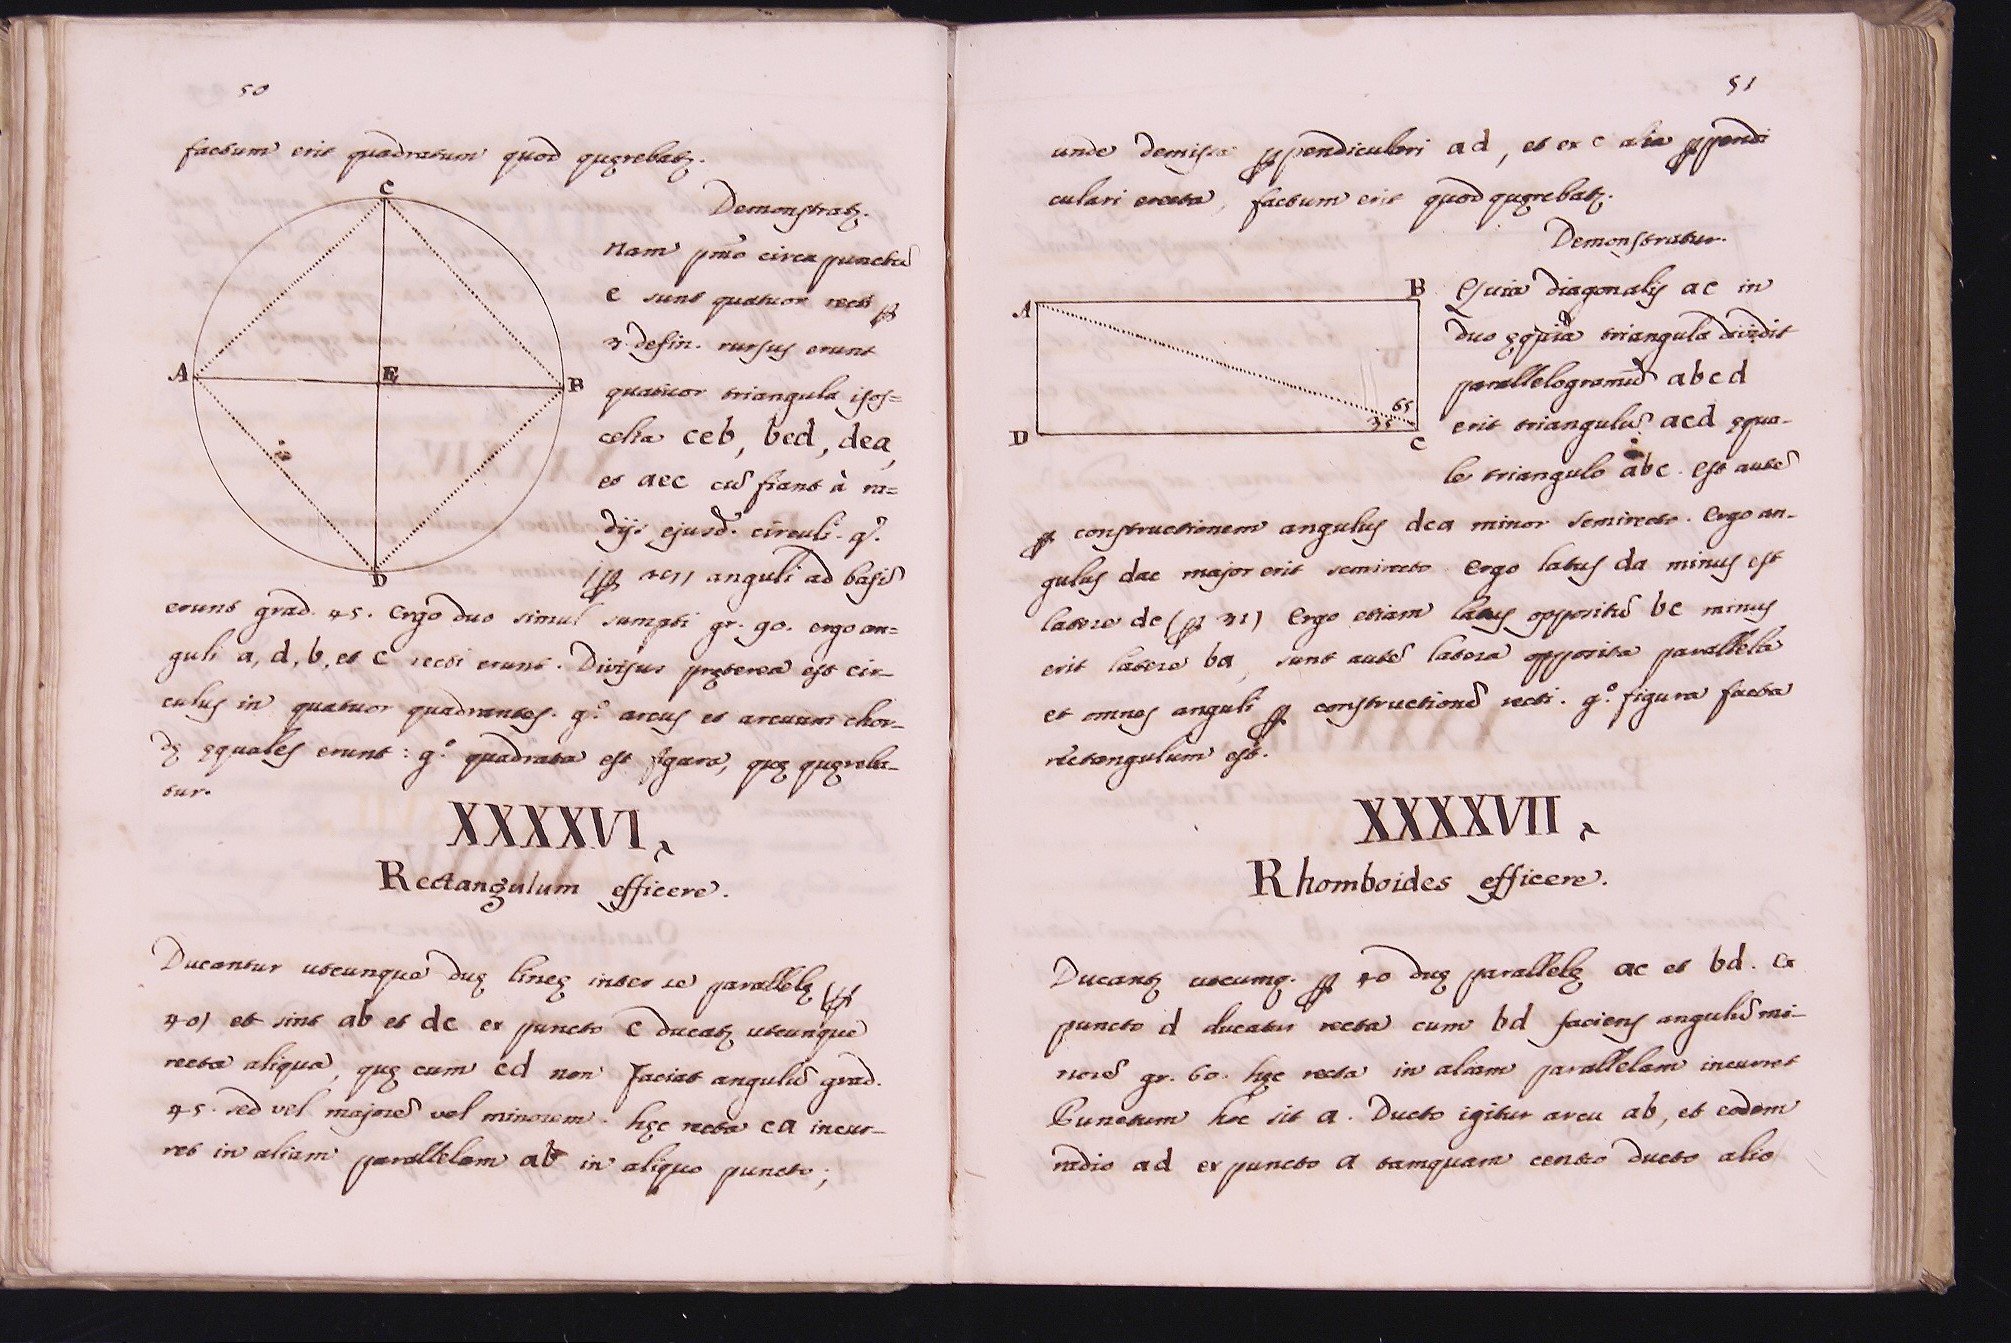 50
factum erit quadratum quod quęrebatꝫ.
C
Demonstratꝫ.
Nam pmo circa punctũ
e sunt quatuor recti ꝑ
3 defin. rursus erunt
A
E
B
quatuor triangula isos=
celia ceb, bed, dea,
et aec cũ fiant à ra=
dijs ejusd. circuli. q.
D
anguli ad basiũ
erunt grad. 45. Ergo duo simul sumpti gr. 90. ergo an=
guli a, d, b, et c recti erunt. Divisus pręterea est cir-
culus in quatuor quadrantes. g.º arcus et arcuum chor-
dę ęquales erunt: g.º quadrata est figura, quę quęreba-
tur.
XXXXVI.
Rectangulum efficere.
Ducantur utcunque duę lineę inter se parallelę (ꝑ
40) et sint ab et dc ex puncto c ducatꝫ utcunque
recta aliqua, quę cum cd non faciat angulũ grad.
45. sed vel majorẽ vel minorem. hęc recta ca incur-
ret in aliam parallelam ab in aliquo puncto;
51
unde demissa ꝑpendiculari ad, et ex c alia ꝑpendi
culari erecta, factum erit quod quęrebatꝫ.
Demonstratur.
A
B
Quia diagonalis ac in
duo ęquia triangula dividit
parallelogramũ abcd
65
35
D
C
erit triangulũ acd ęqua-
le triangulo abc. Est autẽ
ꝑ constructionem angulus dca minor semirecto. Ergo an-
gulus dac major erit semirecto. Ergo latus da minus est
latere dc (ꝑ 31) Ergo etiam latus oppositũ bc minus
erit latere ba, sunt autẽ latera opposita parallela
et omnes anguli ꝑ constructionẽ recti. g.º figura facta
rectangulum est.
XXXXVII.
Rhomboides efficere.
Ducantꝫ utcumq. ꝑ 40 duę parallelę ac et bd. Ex
puncto d ducatur recta cum bd faciens angulũ mi-
norẽ gr. 60. hęc recta in aliam parallelam incurret
Punctum hoc sit a. Ducto igitur arcu ab, et eodem
radio ad ex puncto a tamquam centro ducto alio